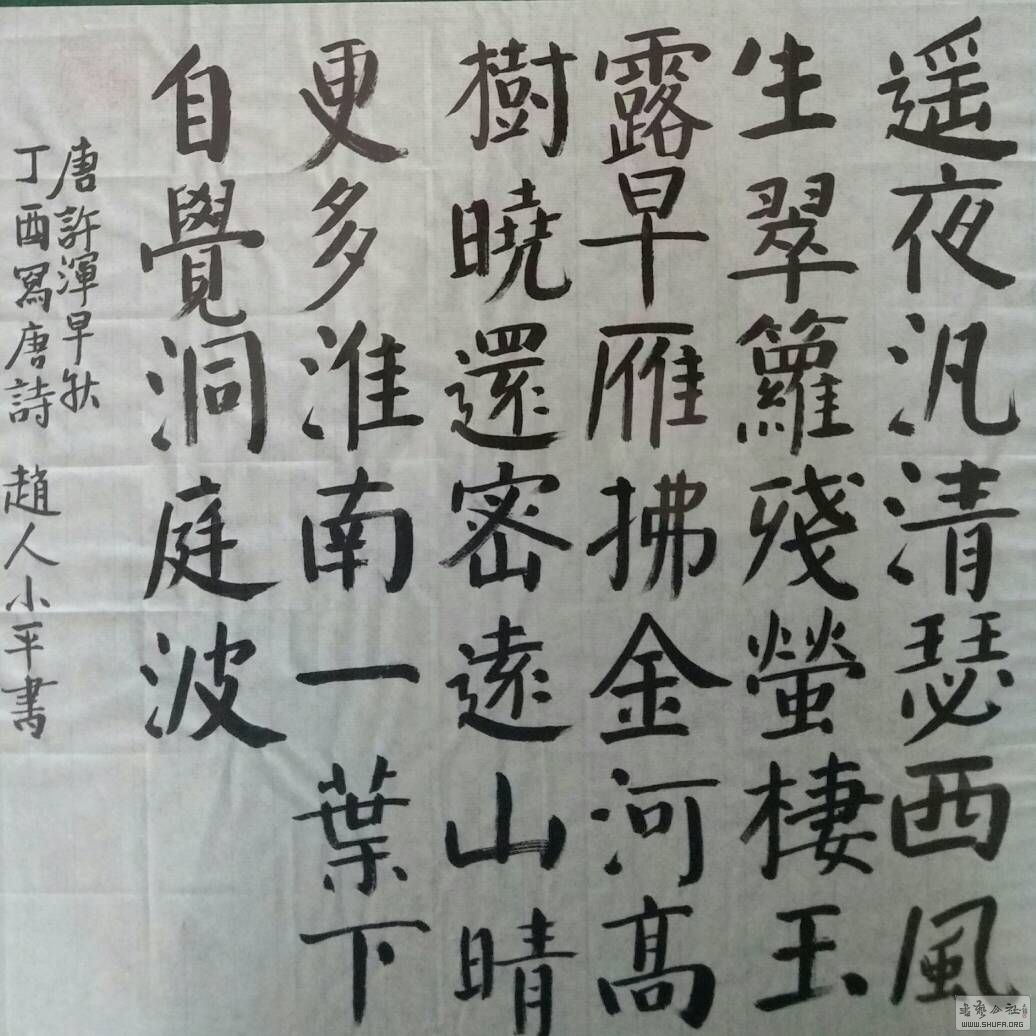 遥夜汎清瑟西風
生翠籮殘螢棲玉
露早雁拂金河高
樹曉還密遠山晴
更多淮南一葉下
自覺洞庭波
唐許渾早秋
丁酉寫唐詩 趙人小平書
书艺公社
WWW.SHUFA.ORG